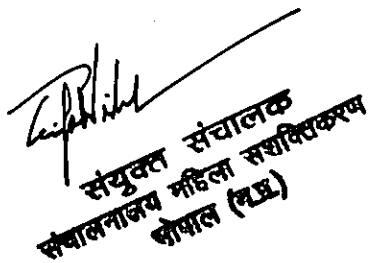 संयुक्त संचालक
संचालनालय महिला सशक्तिकरण
भोपाल (म.प्र.)